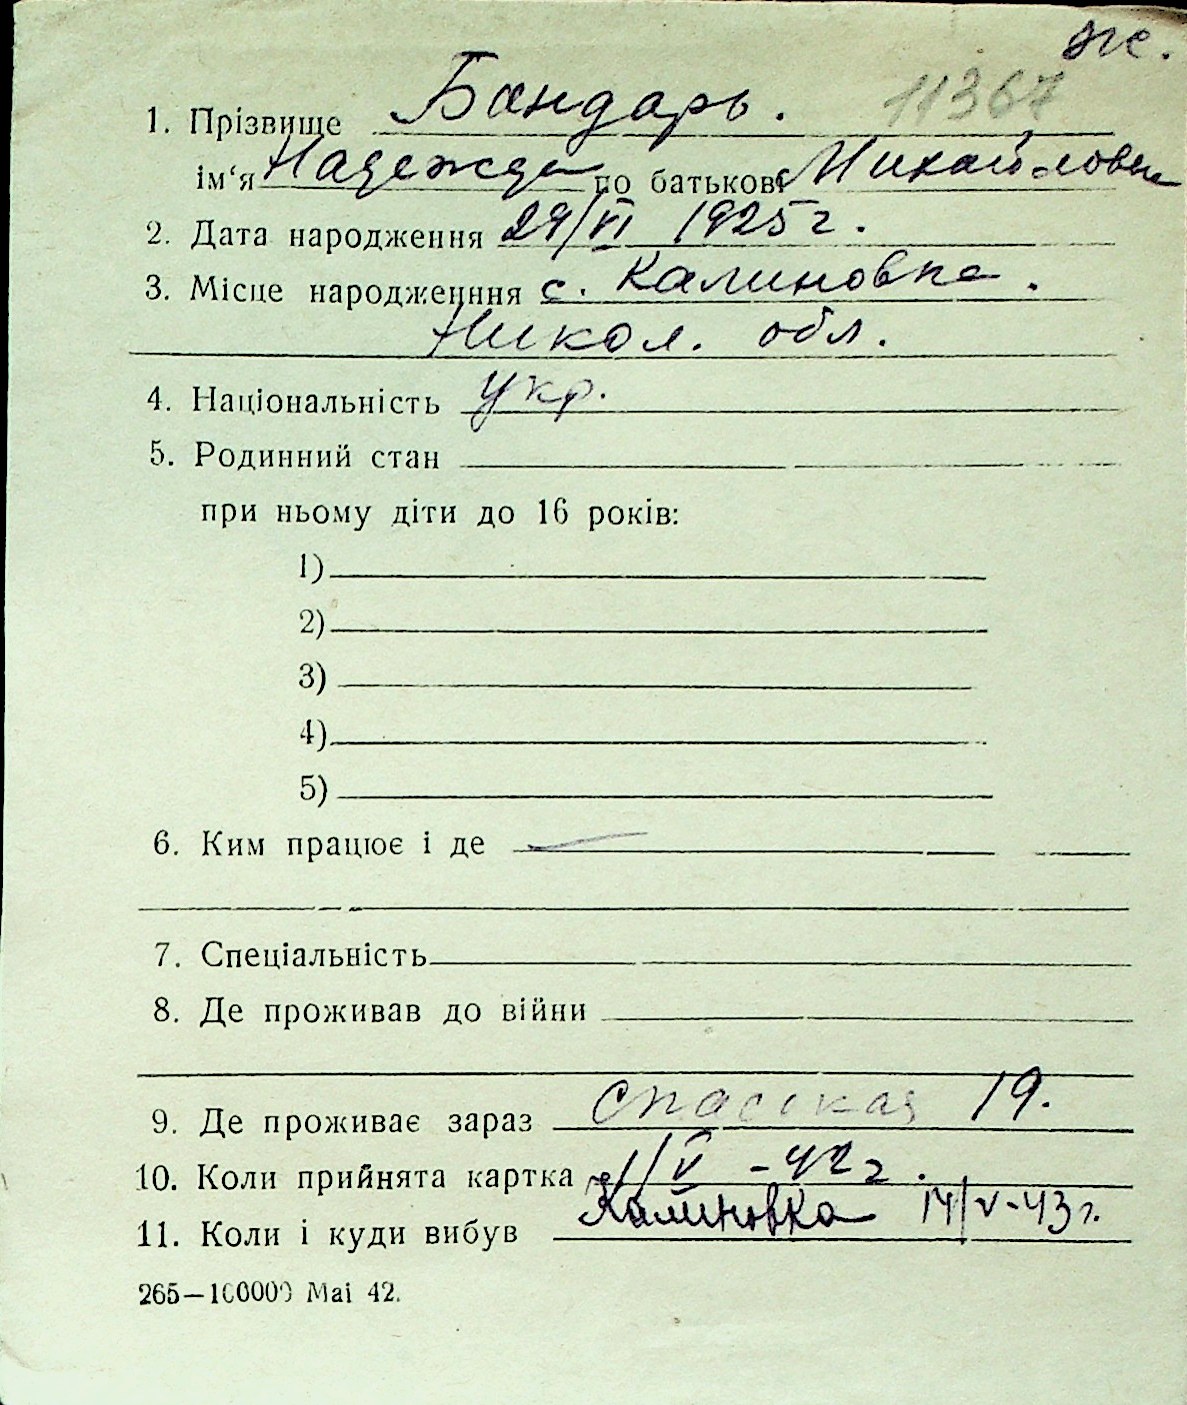 же.
11367
1. Прізвище Бондарь.
ім‘я Надежда по батькові Михайловна
2. Дата народження 29/VI 1925 г.
3. Місце народженння с. Калиновка.
Никол. обл.
4. Національність укр.
5. Родинний стан
при ньому діти до 16 років:
1)
2)
3)
4)
5)
6. Ким працює і де —
7. Спеціальність
8. Де проживав до війни
9. Де проживає зараз Спасская 19.
10. Коли прийнята картка 1/V - 42 г.
11. Коли і куди вибув Калиновка 14/V-43 г.
265—100000 Mai 42.